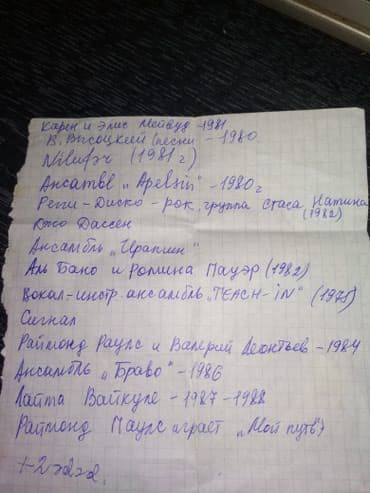 Карен и Элис Мейвуд - 1981
В. Высоцкий (песни - 1980
Nilufər (1981 г)
Ансамбль „Apelsin" - 1980 г
Регги - Диско - рок, группа Стаса Намина
(1982)
Джо Дассен
Ансамбль „Ирапшин"
Аль Бано и Ромина Пауэр (1982)
Вокал-инстр. ансамбль „TEACH-IN" (1975)
Сигнал
Раймонд Раулс и Валерий Леонтьев - 1984
Ансамбль „Браво" - 1986
Лайма Вайкуле - 1987 - 1988
Раймонд Паулс играет „Мой путь")